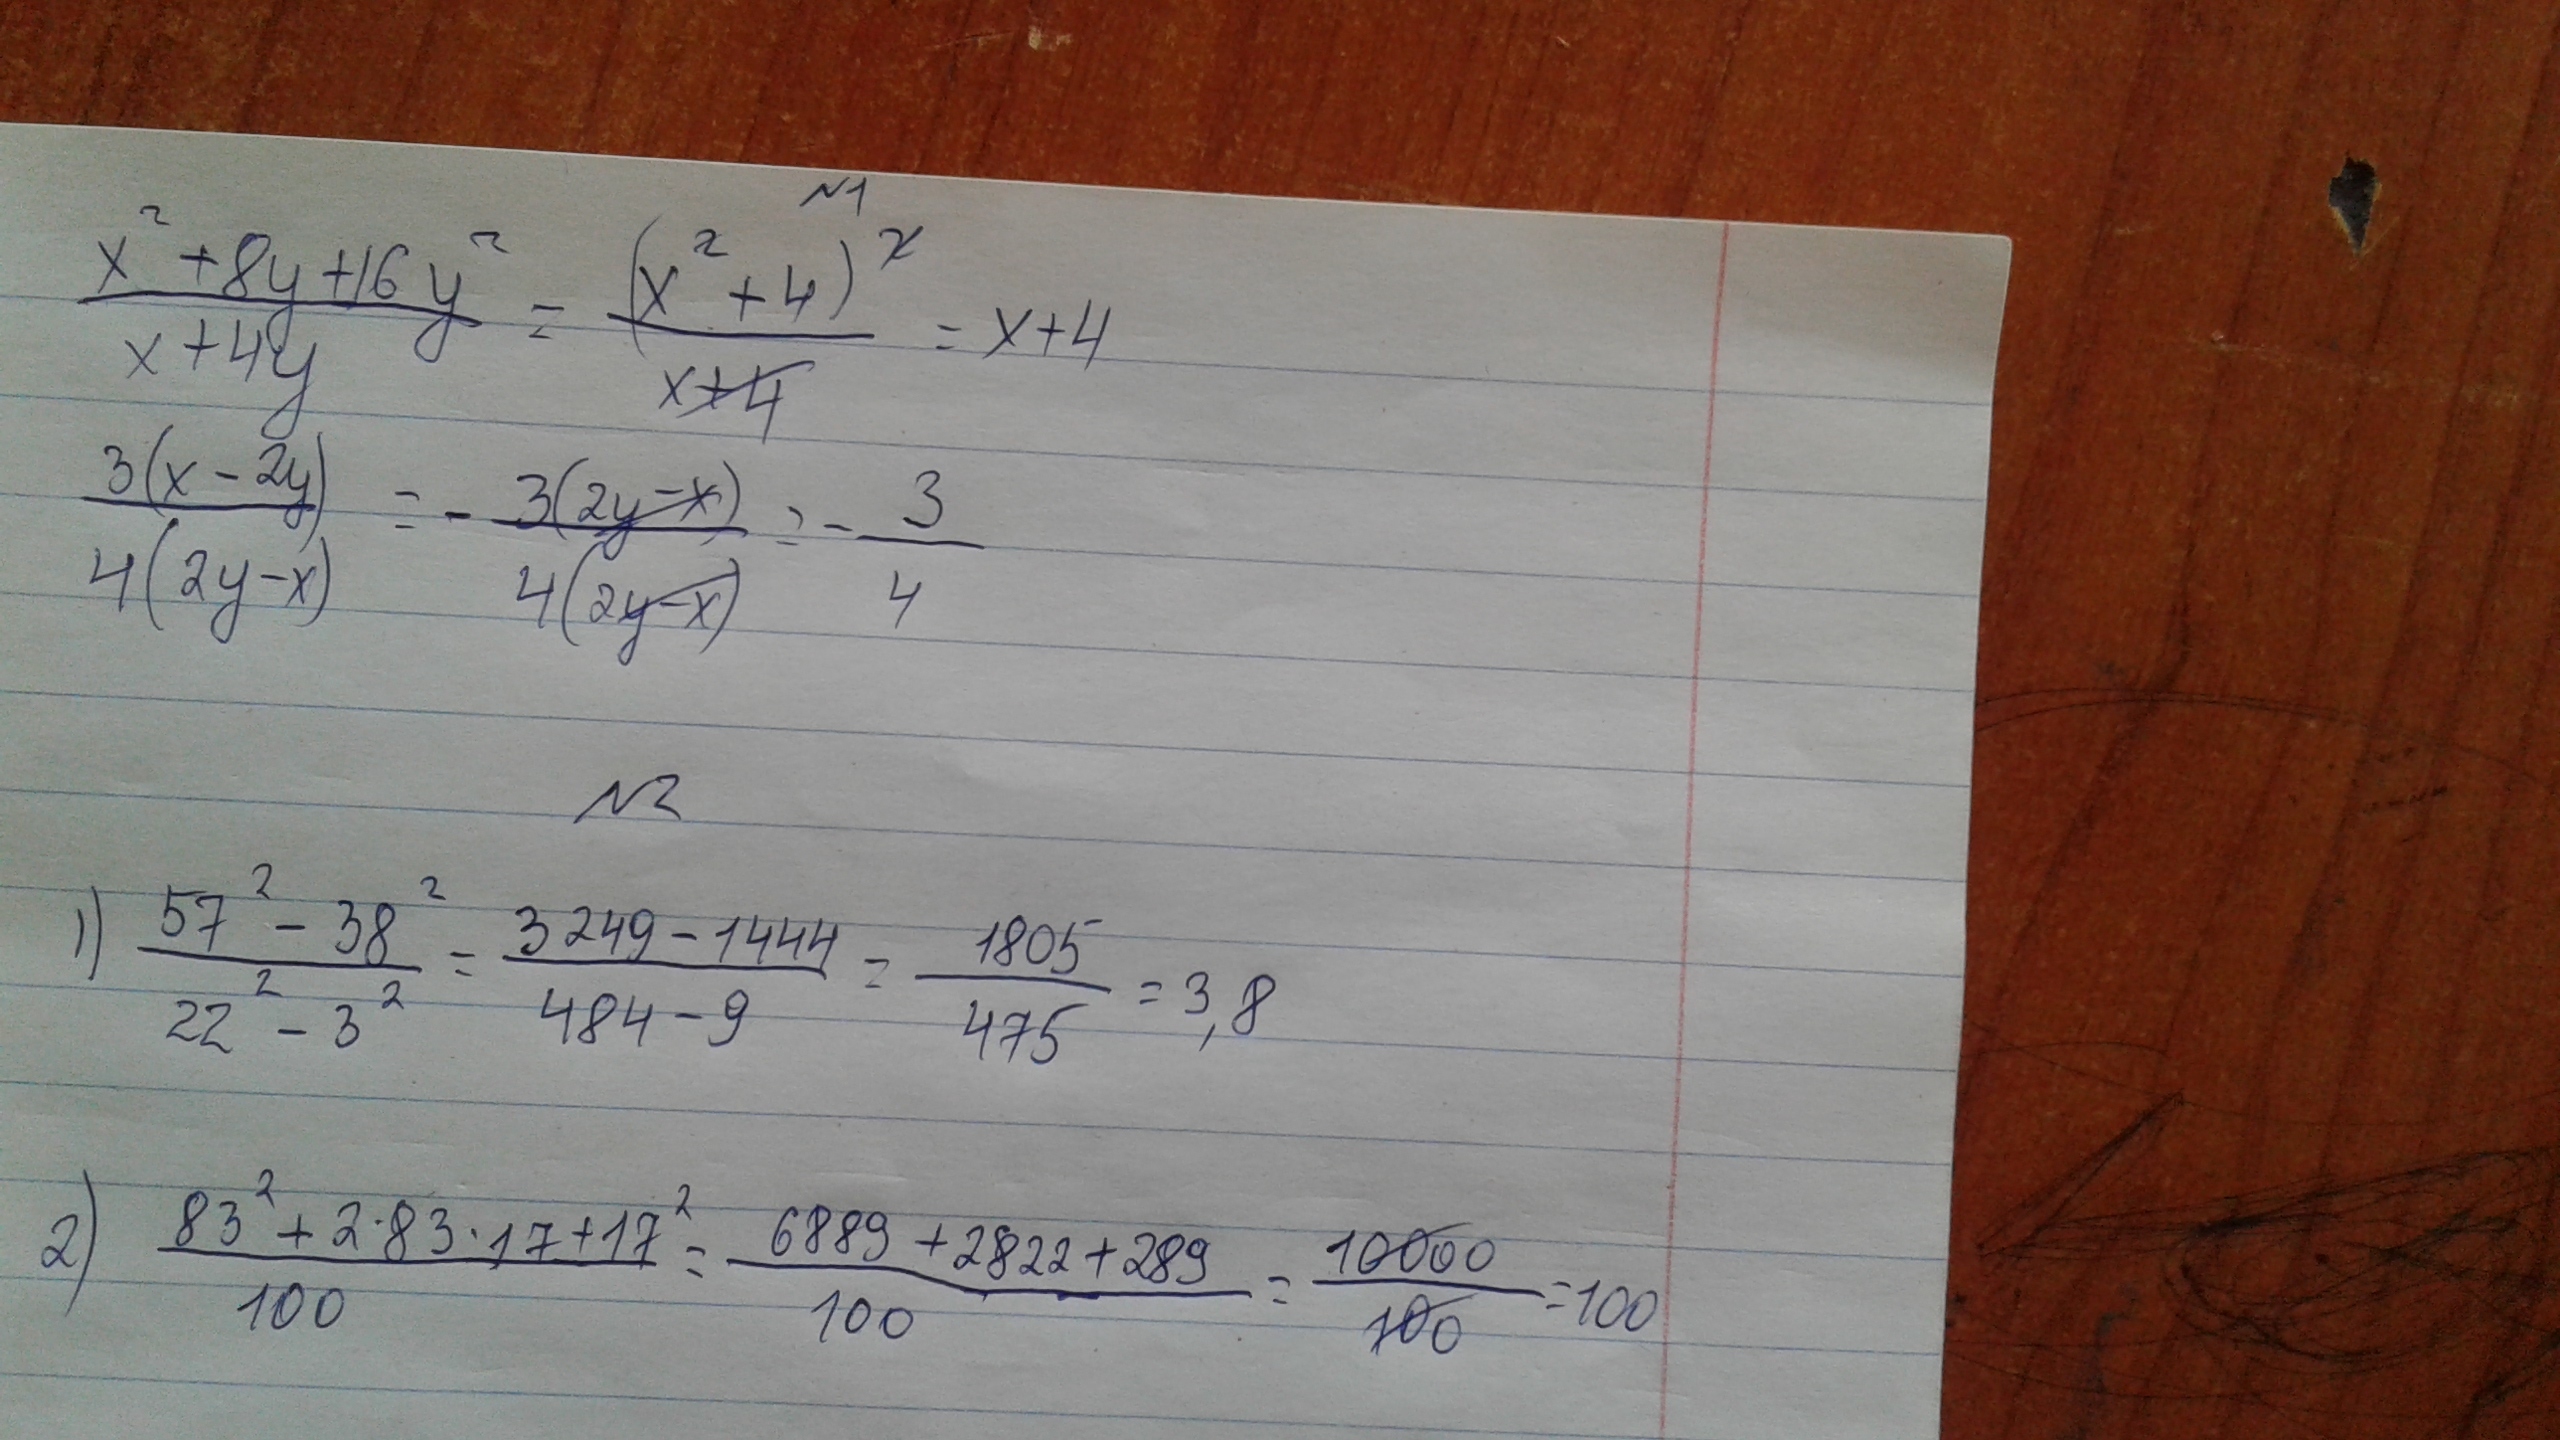 №1
(x² + 8y + 16y²)/(x + 4y) = (x² + 4)²/(x + 4) = x + 4
3(x - 2y)/4(2y - x) = - 3(2y - x)/4(2y - x) = - 3/4
№2
1) (57² - 38²)/(22² - 3²) = (3249 - 1444)/(484 - 9) = 1805/475 = 3,8
2) (83² + 2·83·17 + 17²)/100 = (6889 + 2822 + 289)/100 = 10000/100 = 100